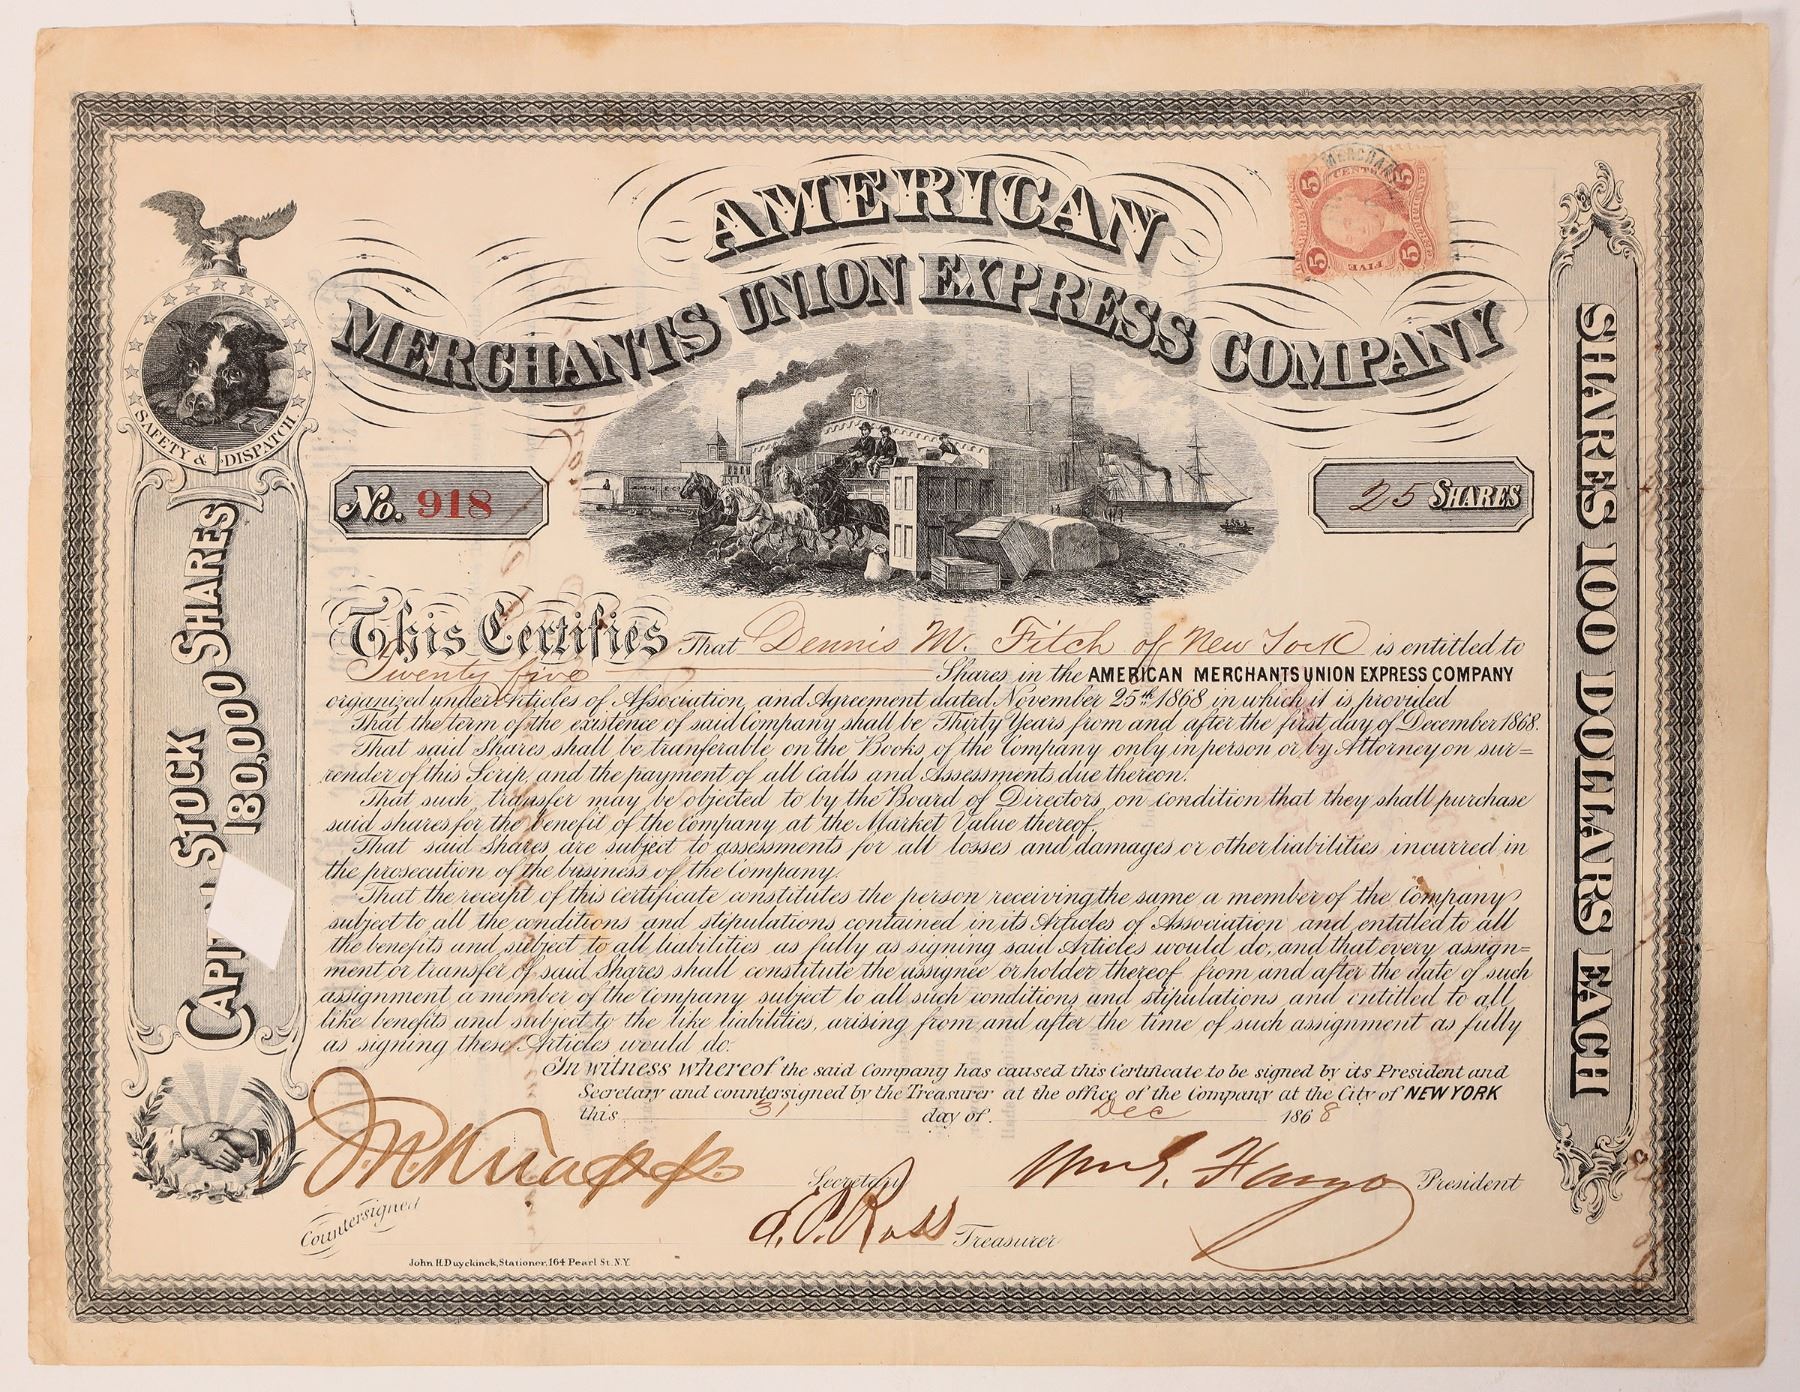 AMERICAN
MERCHANTS UNION EXPRESS COMPANY
MERCHAN
5 CENTS 5
5 FIVE 5
SAFETY & DISPATCH
No. 918
25 SHARES
CAPI STOCK
180,000 SHARES
SHARES 100 DOLLARS EACH
This Certifies That Dennis M. Fitch of New York is entitled to
Twenty five Shares in the AMERICAN MERCHANTS UNION EXPRESS COMPANY
organized under Articles of Association, and Agreement dated November 25th 1868 in which it is provided
That the term of the existence of said Company shall be Thirty Years from and after the first day of December 1868.
That said Shares shall be tranferable on the Books of the Company only in person or by Attorney on sur=
render of this Scrip, and the payment of all Calls and Assessments due thereon.
That such, transfer may be objected to by the Board of Directors, on condition that they shall purchase
said shares for the benefit of the Company at the Market Value thereof.
That said Shares are subject to assessments for all losses and damages or other liabilities incurred in
the prosecution of the business of the Company.
That the receipt of this Certificate constitutes the person receiving the same a member of the Company
subject to all the conditions and stipulations contained in its Articles of Association and entitled to all
the benefits and subject to all liabilities as fully as signing said Articles would do, and that every assign=
ment or transfer of said Shares shall constitute the assignee or holder thereof from and after the date of such
assignment a member of the Company subject to all such conditions and stipulations and entitled to all
like benefits and subject to the like liabilities, arising from and after the time of such assignment as fully
as signing these Articles would do.
In witness whereof the said Company has caused this Certificate to be signed by its President and
Secretary and countersigned by the Treasurer at the office of the Company at the City of NEW YORK
this 31 day of Dec 1868
J. N. Knapp Secretary Wm G. Fargo President
Countersigned J. C. Ross Treasurer
John H. Duyckinck, Stationer, 164 Pearl St. N.Y.